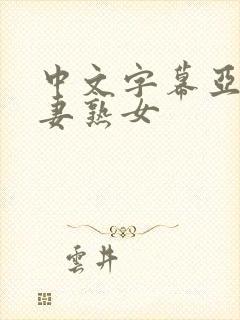 中文字幕亞
妻熟女
雲井